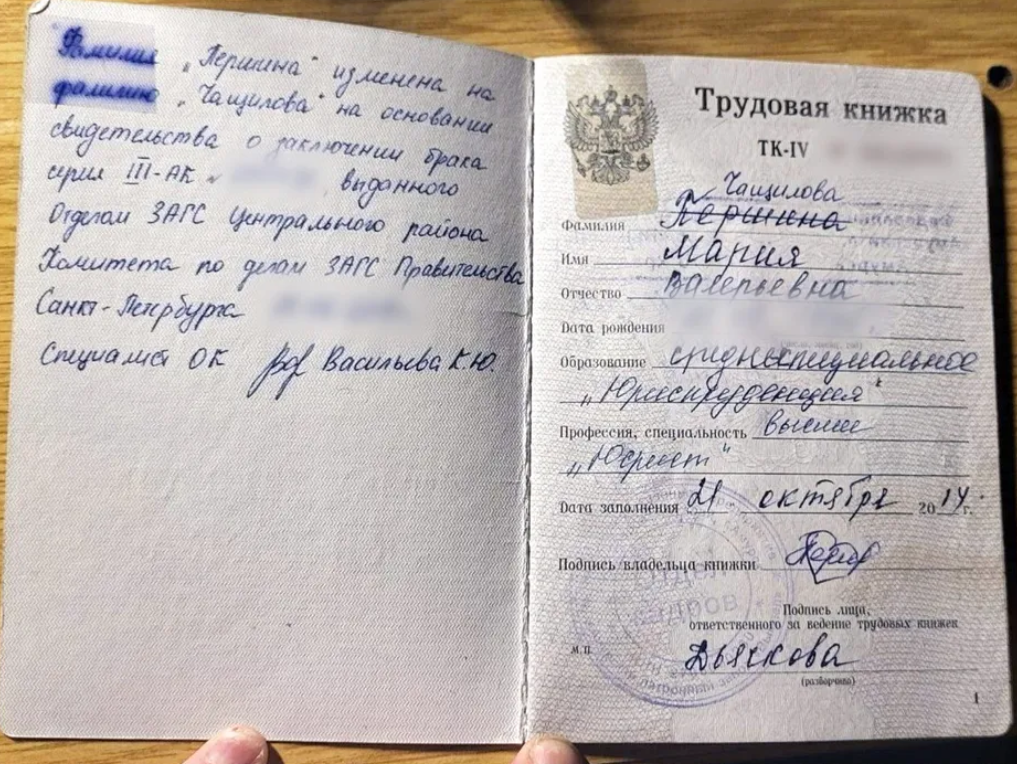 Фамилия „Першина“ изменена на
фамилию „Чащилова“ на основании
свидетельства о заключении брака
серии III-АК выданного
Отделом ЗАГС Центрального района
Комитета по делам ЗАГС Правительства
Санкт-Петербурга
Специалист ОК Васильева К.Ю.
Трудовая книжка
ТК-IV
Чащилова
Фамилия Першина
Имя Мария
Отчество Валерьевна
Дата рождения
Образование среднеспециальное
„Юриспруденция“
Профессия, специальность высшее
„Юрист“
Дата заполнения 21 октября 2014 г.
Подпись владельца книжки
Подпись лица,
ответственного за ведение трудовых книжек
М.П. Дьячкова
(разборчиво)
отдел
кадров
1